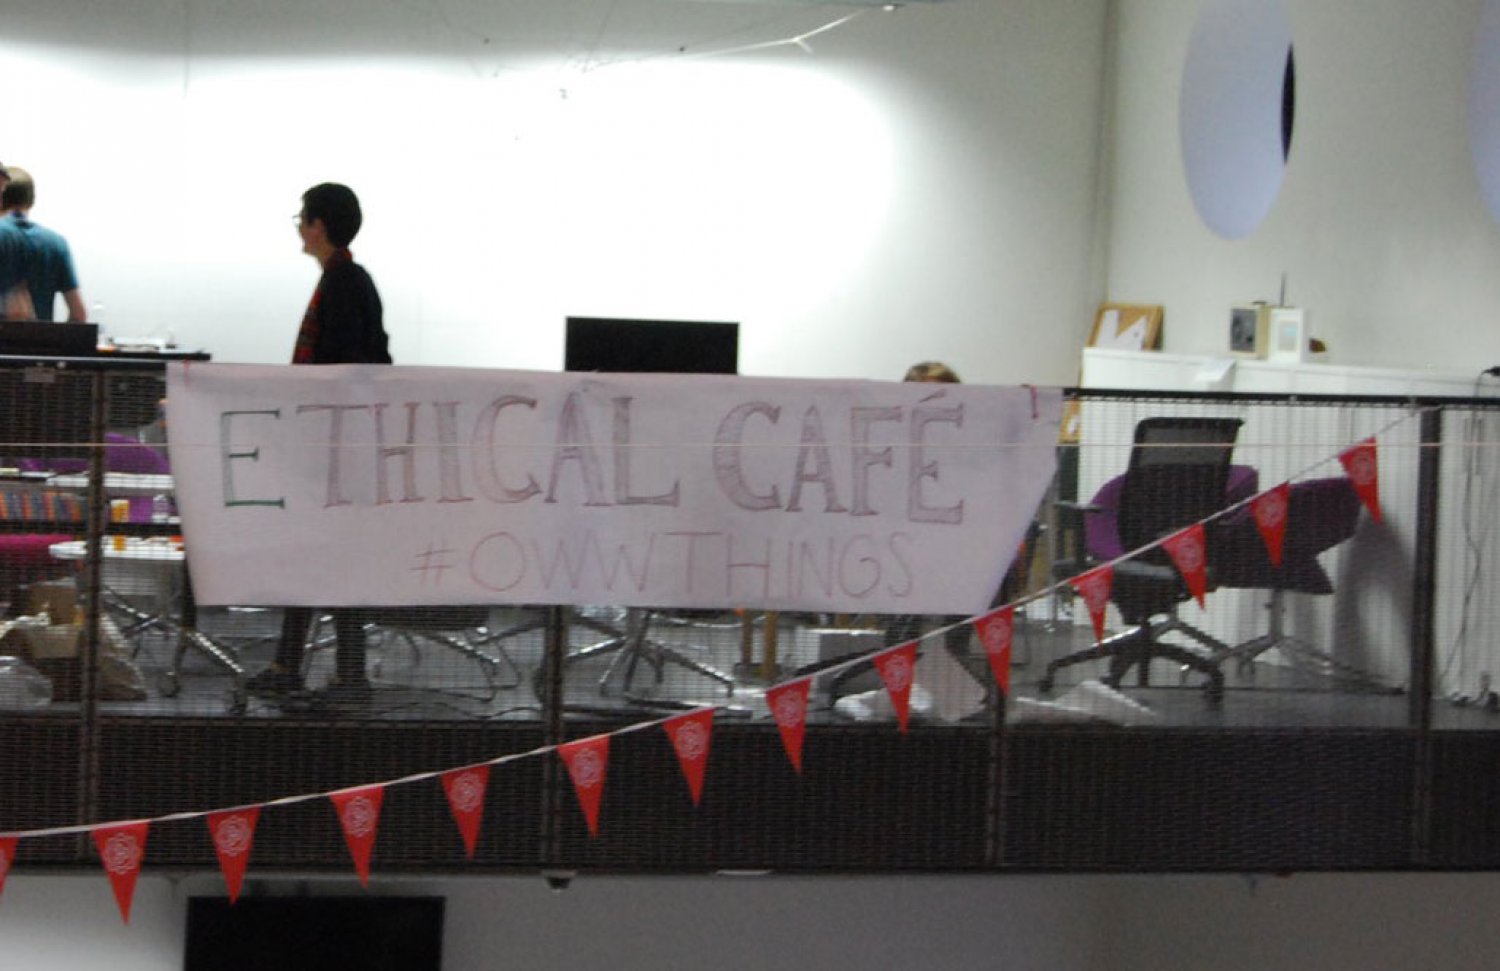 ETHICAL CAFÉ
#OWWTHINGS